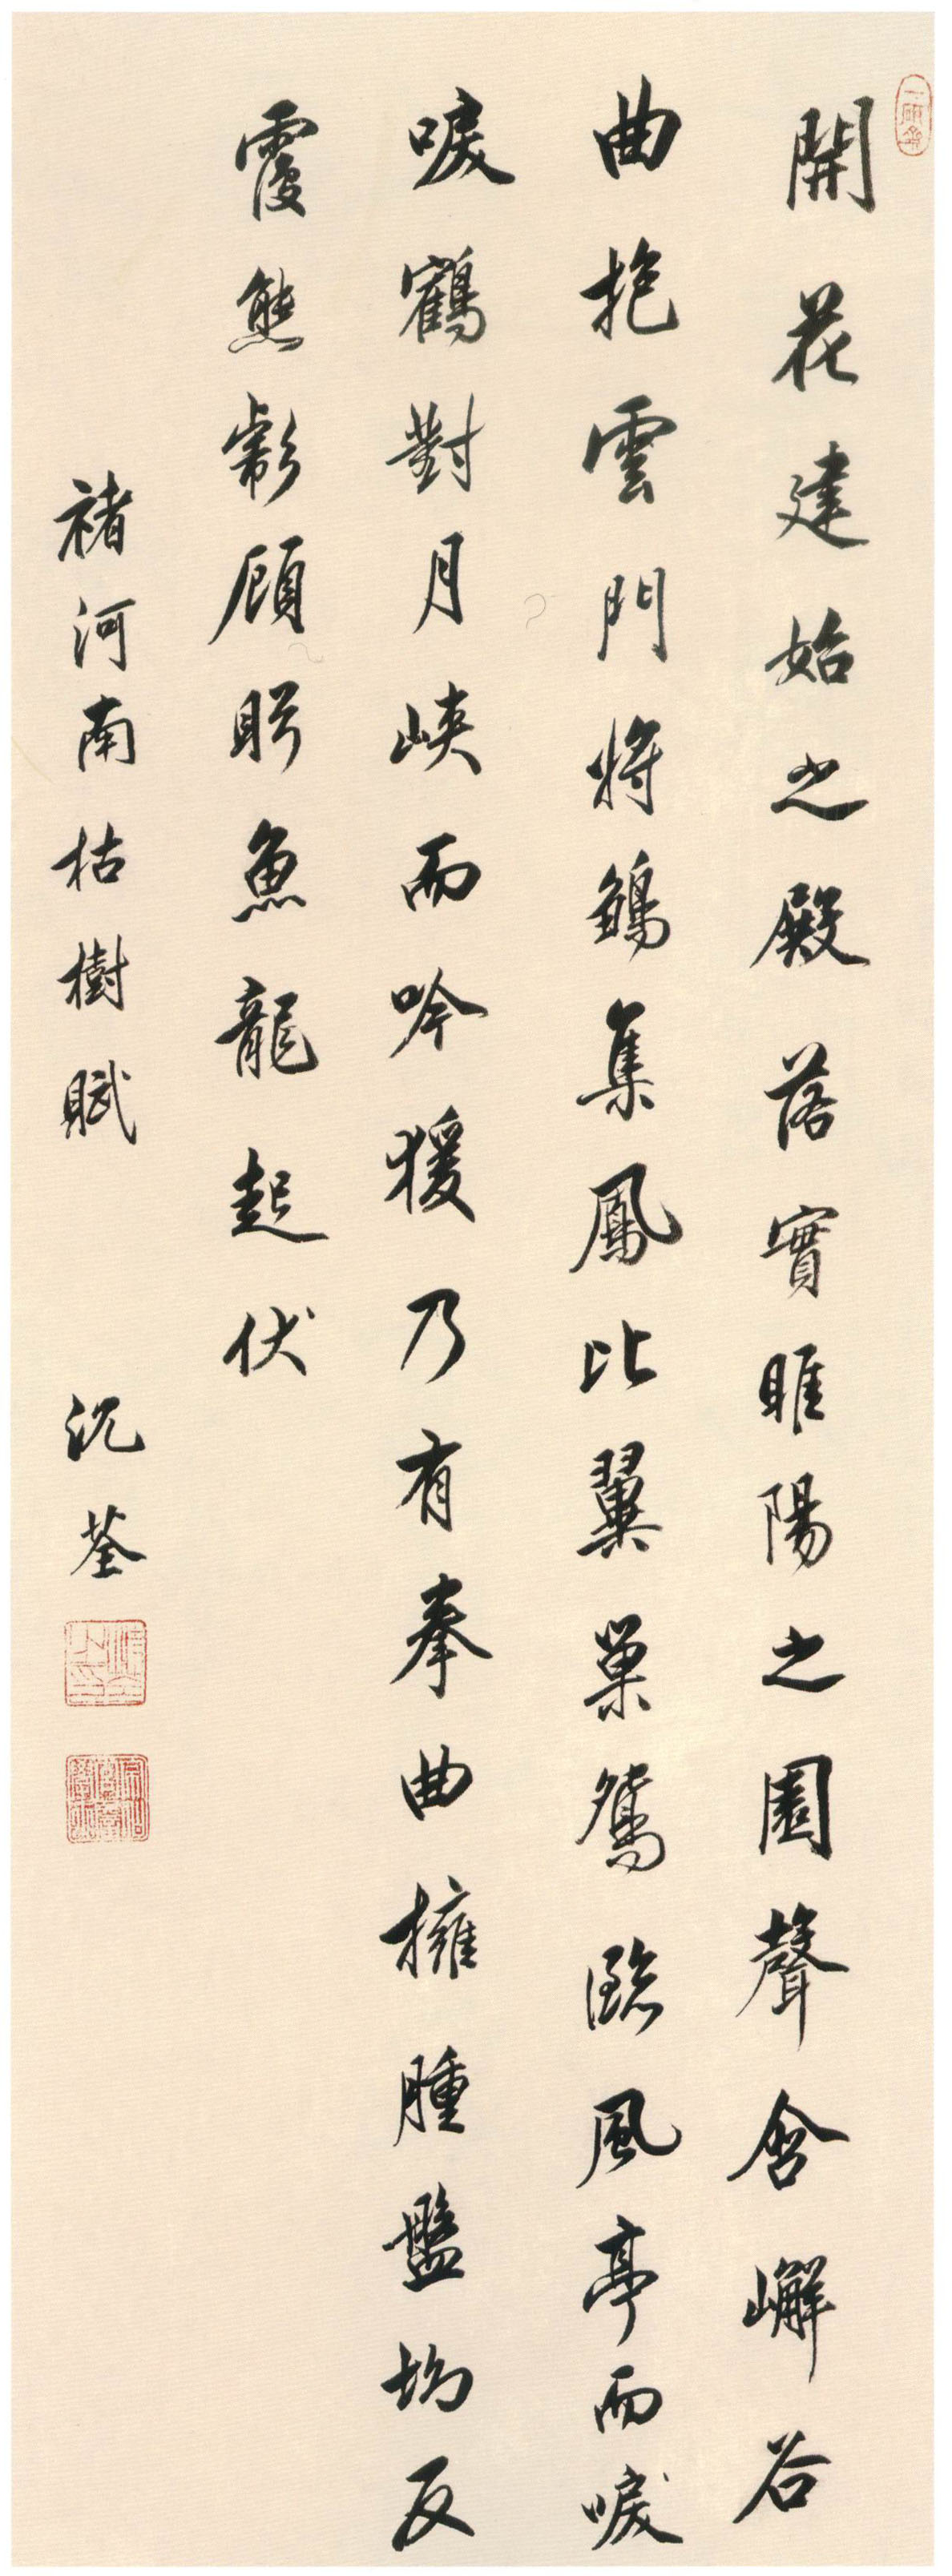 開花建始之殿落實睢陽之園聲含嶰谷
曲抱雲門將鶵集鳳比翼巢鴛臨風亭而唳
唳鶴對月峽而吟猨乃有拳曲擁腫盤坳反
覆熊彪顧盼魚龍起伏
褚河南枯樹賦
沉荃